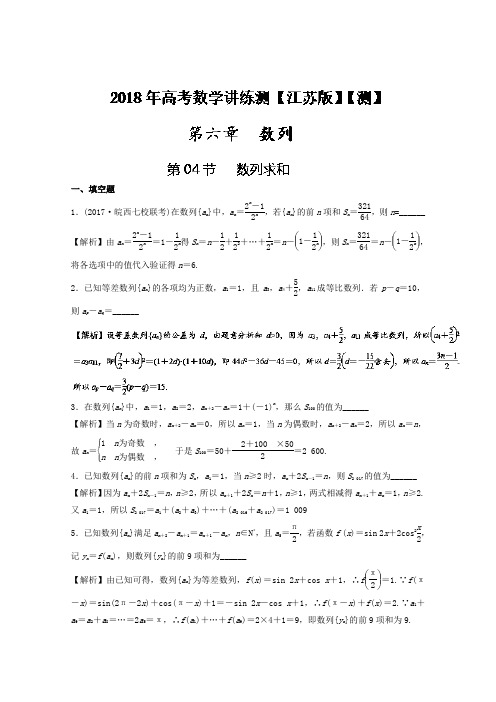 2018年高考数学讲练测【江苏版】【测】
第六章 数列
第04节 数列求和
一、填空题
1.(2017·皖西七校联考)在数列{aₙ}中，aₙ＝(2ⁿ－1)/2ⁿ，若{aₙ}的前n项和Sₙ＝321/64，则n=______
【解析】由aₙ＝(2ⁿ－1)/2ⁿ＝1－1/2ⁿ得Sₙ＝n－1/2＋1/2²＋…＋1/2ⁿ＝n－(1－1/2ⁿ)，则Sₙ＝321/64＝n－(1－1/2ⁿ)，
将各选项中的值代入验证得n＝6.
2．已知等差数列{aₙ}的各项均为正数，a₁＝1，且a₃，a₄＋5/2，a₁₁成等比数列．若p－q＝10，
则aₚ－a_q＝______
【解析】设等差数列{aₙ}的公差为d，由题意分析知d>0，因为a₃，a₄＋5/2，a₁₁成等比数列，所以(a₄＋5/2)²
＝a₃a₁₁，即(7/2＋3d)²＝(1＋2d)·(1＋10d)，即44d²－36d－45＝0，所以d＝3/2(d＝－15/22舍去)，所以aₙ＝(3n－1)/2.
所以aₚ－a_q＝3/2(p－q)＝15.
3．在数列{aₙ}中，a₁＝1，a₂＝2，aₙ₊₂－aₙ＝1＋(－1)ⁿ，那么S₁₀₀的值为______
【解析】当n为奇数时，aₙ₊₂－aₙ＝0，所以aₙ＝1，当n为偶数时，aₙ₊₂－aₙ＝2，所以aₙ＝n，
故aₙ＝{1 n为奇数 ， n n为偶数 ， 于是S₁₀₀＝50＋ 2＋100 ×50/2＝2 600.
4．已知数列{aₙ}的前n项和为Sₙ，a₁＝1，当n≥2时，aₙ＋2Sₙ₋₁＝n，则S₂ ₀₁₇的值为______
【解析】因为aₙ＋2Sₙ₋₁＝n，n≥2，所以aₙ₊₁＋2Sₙ＝n＋1，n≥1，两式相减得aₙ₊₁＋aₙ＝1，n≥2.
又a₁＝1，所以S₂ ₀₁₇＝a₁＋(a₂＋a₃)＋…＋(a₂ ₀₁₆＋a₂ ₀₁₇)＝1 009
5．已知数列{aₙ}满足aₙ₊₂－aₙ₊₁＝aₙ₊₁－aₙ，n∈N*，且a₅＝π/2，若函数f (x)＝sin 2x＋2cos²x/2，
记yₙ＝f(aₙ)，则数列{yₙ}的前9项和为______
【解析】由已知可得，数列{aₙ}为等差数列，f(x)＝sin 2x＋cos x＋1，∴f(π/2)＝1.∵f(π
－x)＝sin(2π－2x)＋cos(π－x)＋1＝－sin 2x－cos x＋1，∴f(π－x)＋f(x)＝2.∵a₁＋
a₉＝a₂＋a₈＝…＝2a₅＝π，∴f(a₁)＋…＋f(a₉)＝2×4＋1＝9，即数列{yₙ}的前9项和为9.